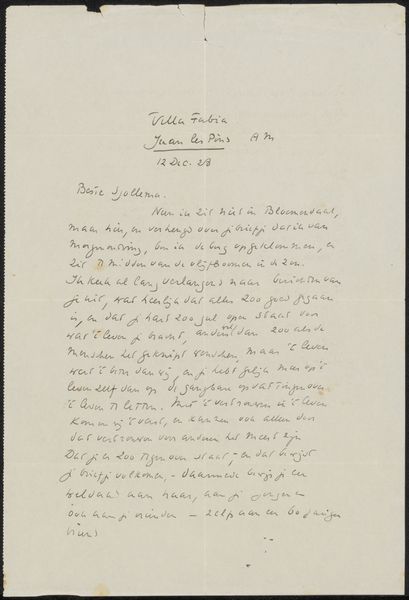 Villa Fabia
Juan les Pins AM
12 Dec. 28
Beste Sjollema.
Neen ik zit niet in Bloemendaal,
maar hier, en verheugd over je briefje dat ik van
morgen ontving, ben ik de berg opgeklommen, en
zit midden van de olijfboomen in de zon.
Ik keek al lang verlangend naar berichten van
je uit, wat heerlijk dat alles zoo goed gegaan
is, en dat je hart zoo gul open staat voor
wat 't leven je bracht, anders wel dan zoo als de
menschen het geknipt wenschen, maar 't leven
weet 't beter dan wij, en je hebt gelijk meer op 't
leven zelf dan op de gangbare opvattingen over
't leven te letten. Met 't vertrouwen in 't leven
komen wij 't verst, en kunnen ook allen door
dat vertrouwen voor anderen het meest zijn
Dat je er zoo tegenover staat, - en dat bewijst
je briefje volkomen, - daarmede bewijs je een
weldaad aan haar, aan je jongen en
ook aan je vrienden — zelfs aan een 60 jarigen